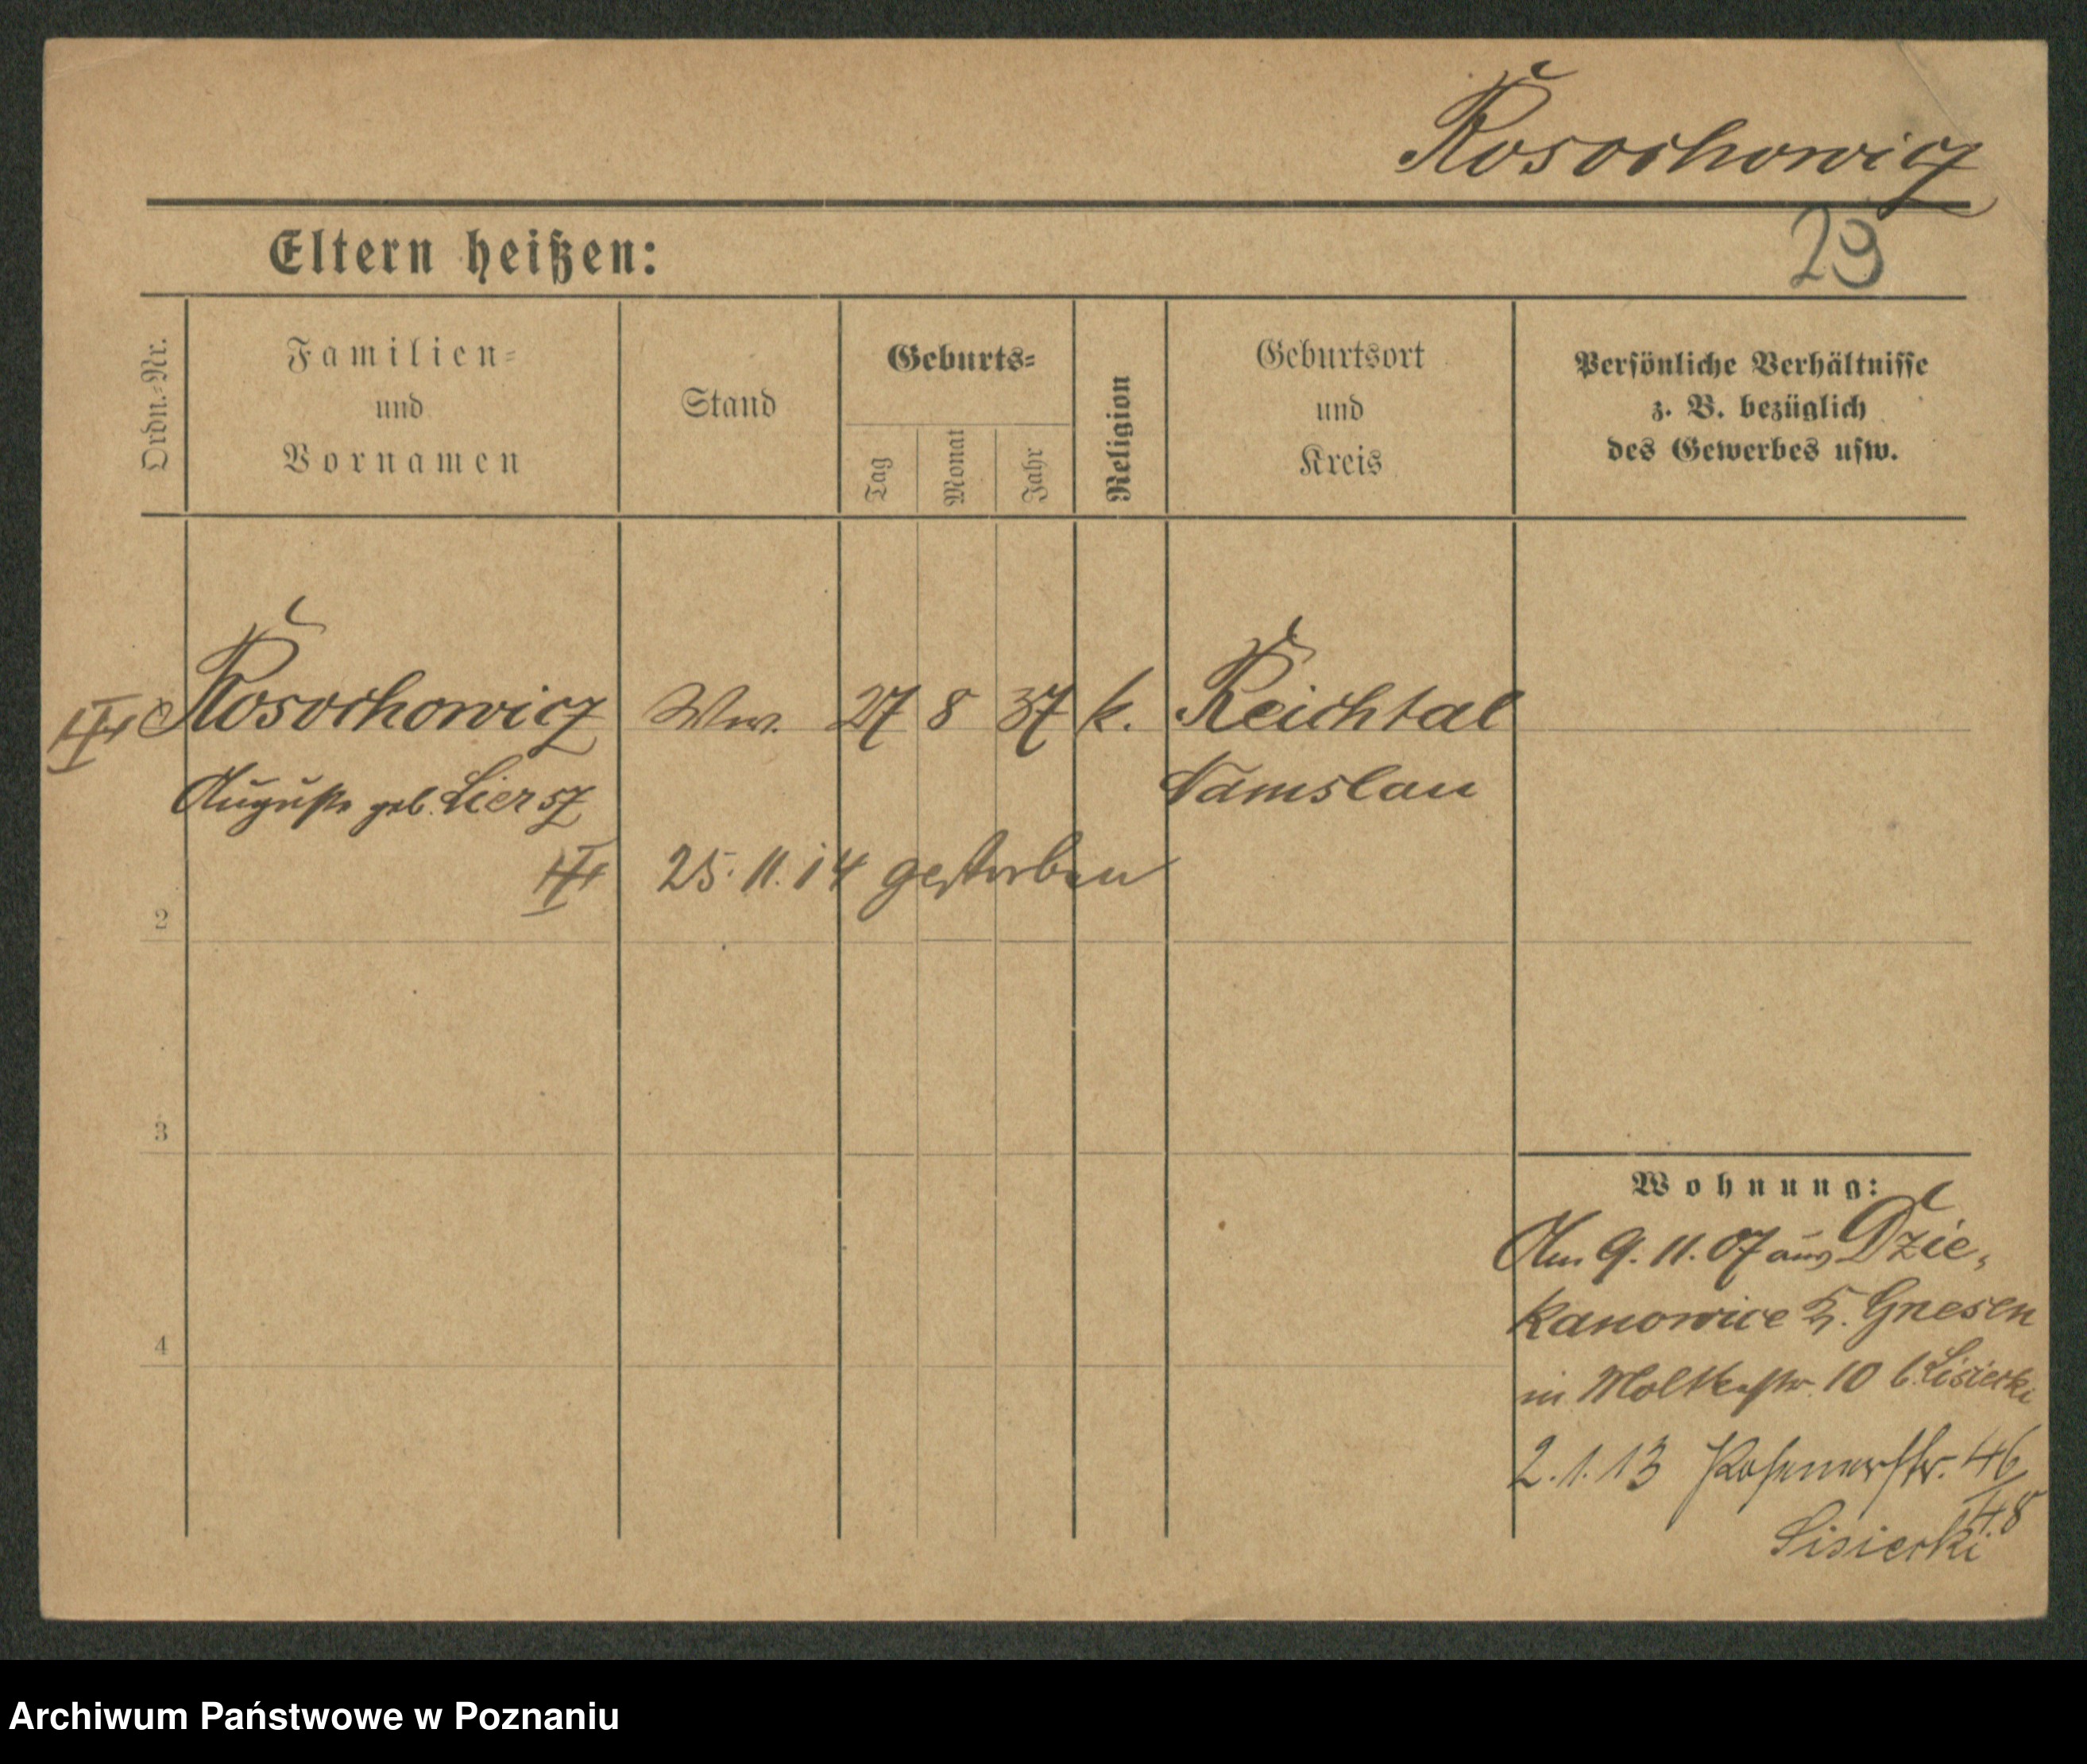 Rosochowicz
29
Eltern heißen:
Ordn.-Nr.
Familien-
und
Vornamen
Stand
Geburts-
Tag
Monat
Jahr
Religion
Geburtsort
und
Kreis
Persönliche Verhältnisse
z. B. bezüglich
des Gewerbes usw.
Rosochowicz Ww. 27 8 37 k. Reichtal
Auguste geb. Liersz Namslau
25. 11. 14 gestorben
2
3
4
Wohnung:
Am 9. 11. 07 aus Dzie-
kanowice K. Gnesen
in Moltkestr. 10 b. Lisiecki
2. 1. 13 Posenerstr. 46/48
Lisiecki
Archiwum Państwowe w Poznaniu